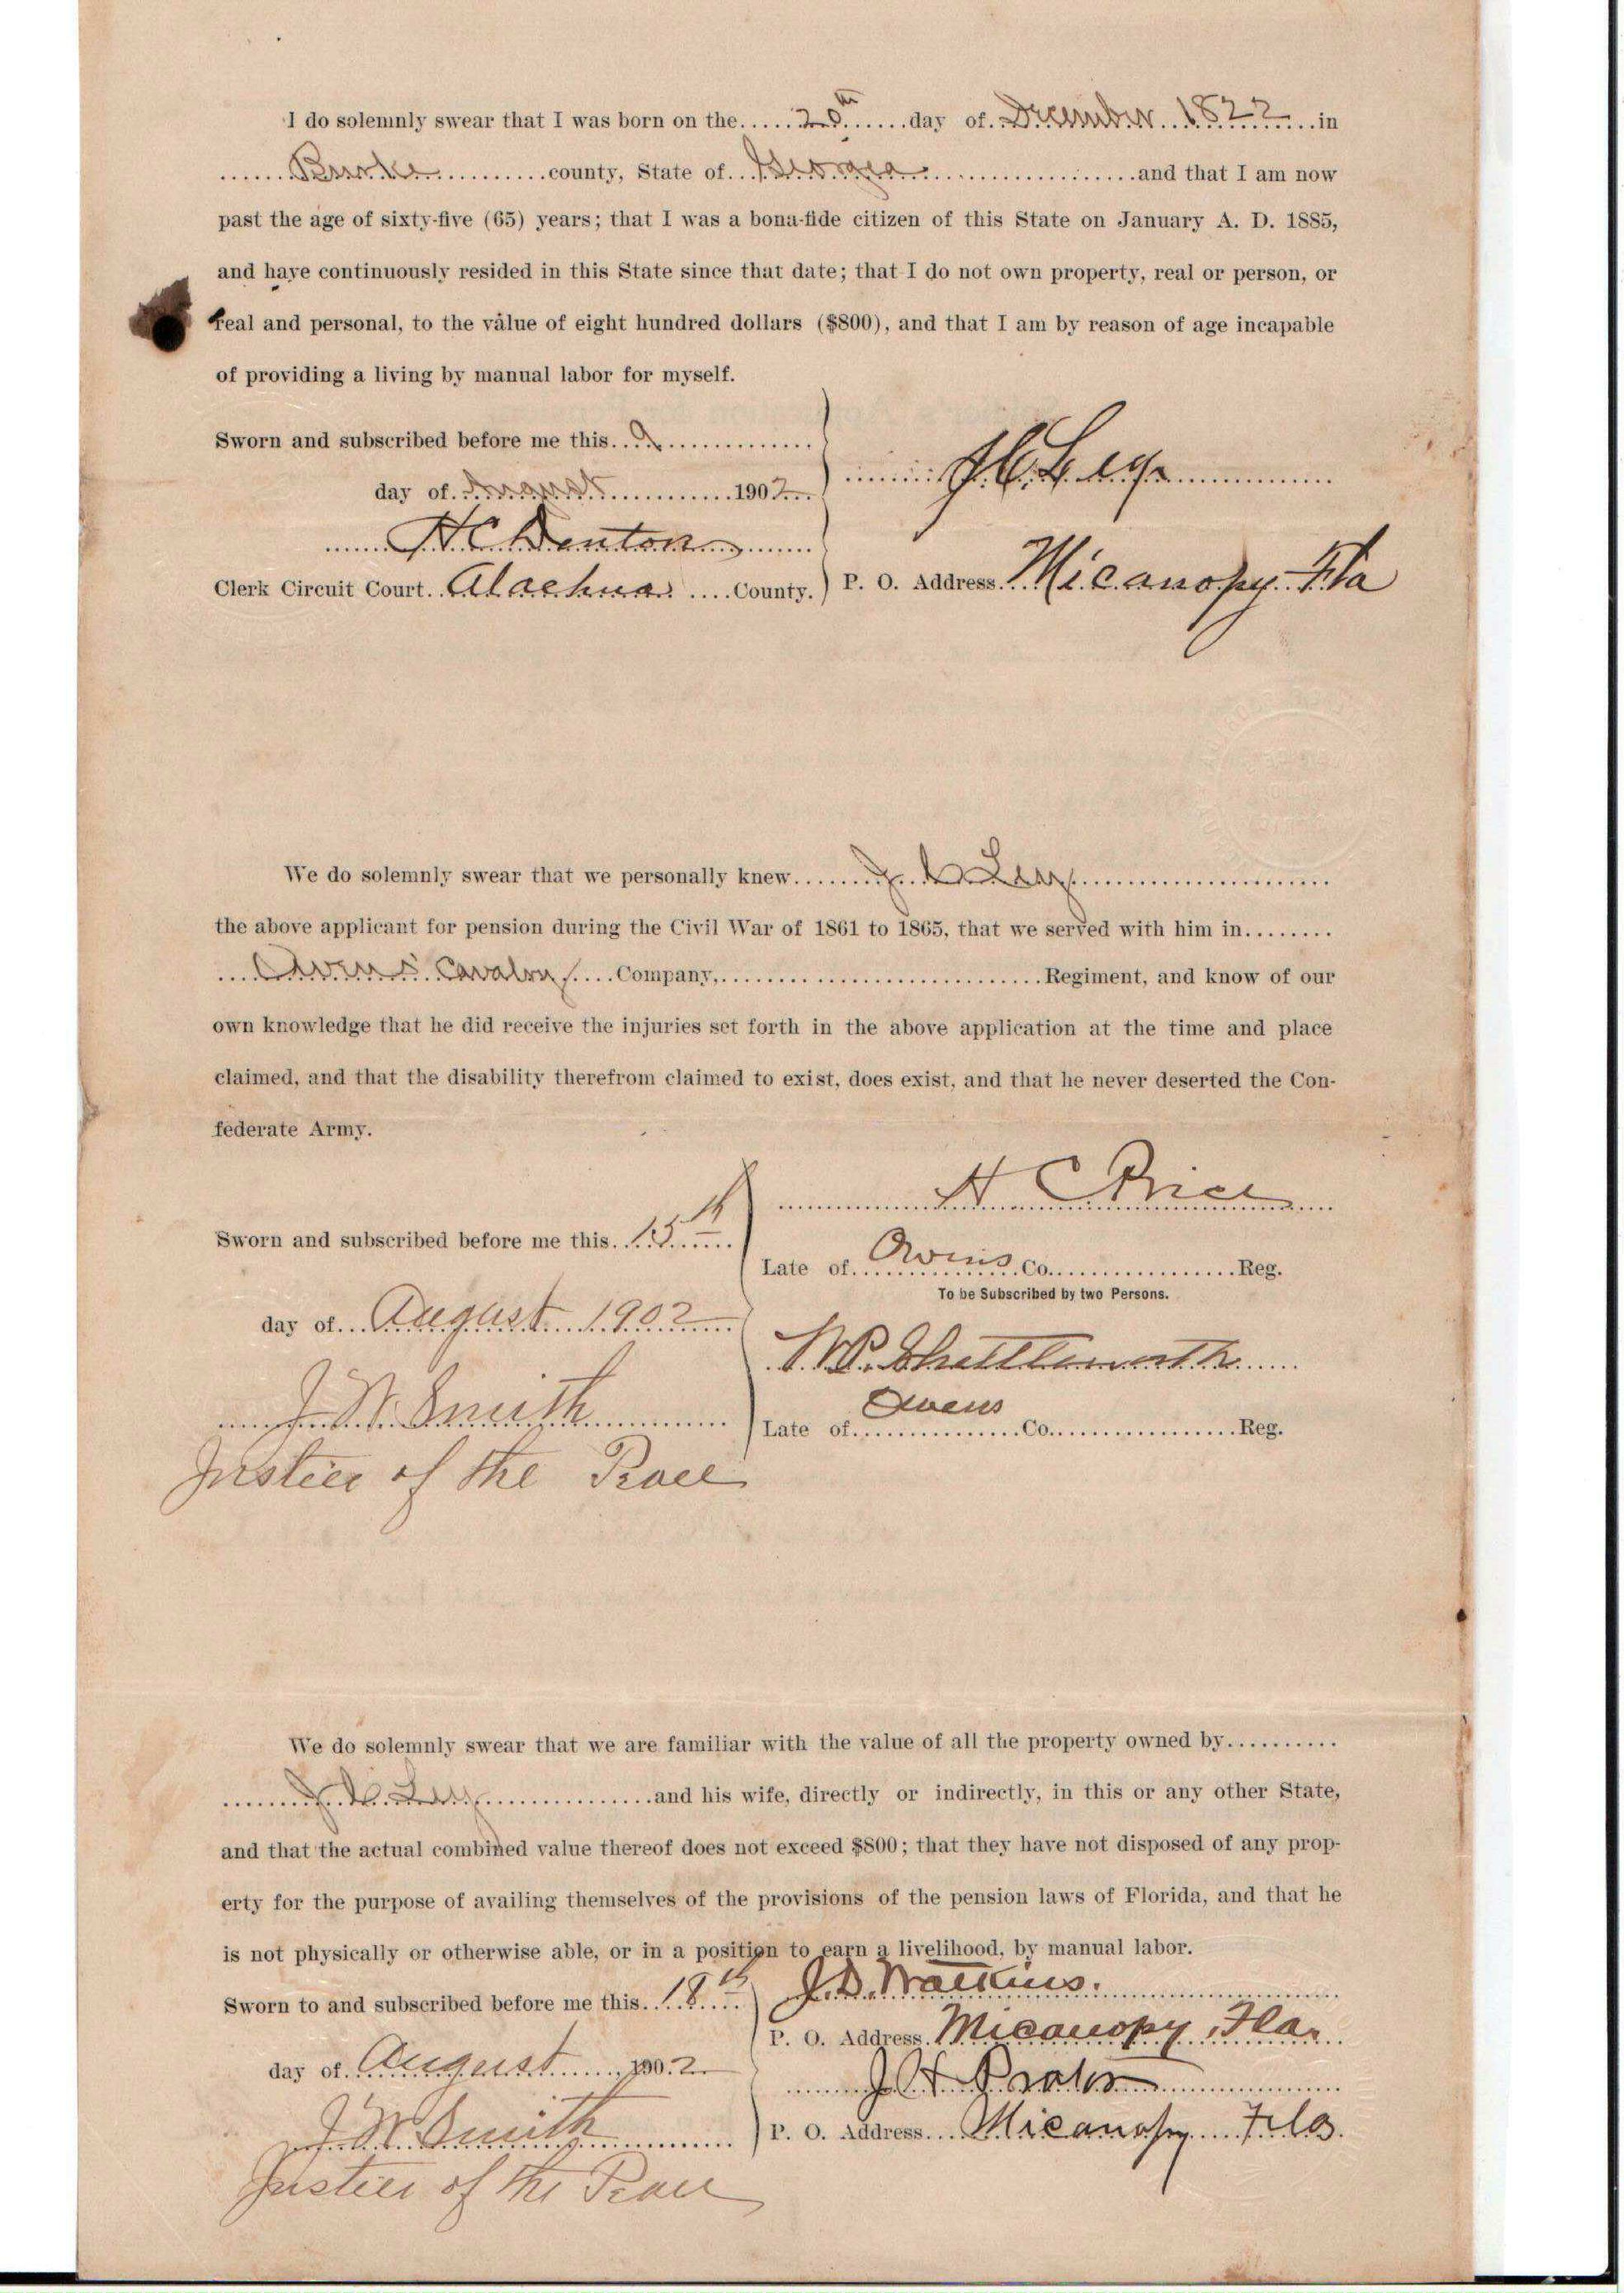 I do solemnly swear that I was born on the 20th day of December 1822 in
Burke county, State of Georgia and that I am now
past the age of sixty-five (65) years; that I was a bona-fide citizen of this State on January A. D. 1885,
and have continuously resided in this State since that date; that I do not own property, real or person, or
real and personal, to the value of eight hundred dollars ($800), and that I am by reason of age incapable
of providing a living by manual labor for myself.
Sworn and subscribed before me this 9
day of August 1902
H C Denton
Clerk Circuit Court Alachua County.
J C Ley
P. O. Address Micanopy Fla
We do solemnly swear that we personally knew J. C. Ley
the above applicant for pension during the Civil War of 1861 to 1865, that we served with him in
Owens' Cavalry Company, Regiment, and know of our
own knowledge that he did receive the injuries set forth in the above application at the time and place
claimed, and that the disability therefrom claimed to exist, does exist, and that he never deserted the Con-
federate Army.
Sworn and subscribed before me this 15th
day of August 1902
J. W. Smith
Justice of the Peace
H C Price
Late of Owens Co. Reg.
To be Subscribed by two Persons.
W.P. Shettleworth
Late of Owens Co. Reg.
We do solemnly swear that we are familiar with the value of all the property owned by
J. C. Ley and his wife, directly or indirectly, in this or any other State,
and that the actual combined value thereof does not exceed $800; that they have not disposed of any prop-
erty for the purpose of availing themselves of the provisions of the pension laws of Florida, and that he
is not physically or otherwise able, or in a position to earn a livelihood, by manual labor.
Sworn to and subscribed before me this 18th
day of August 1902
J. W. Smith
Justice of the Peace
J. D. Watkins.
P. O. Address Micanopy, Fla.
J H
P. O. Address Micanopy Fla.